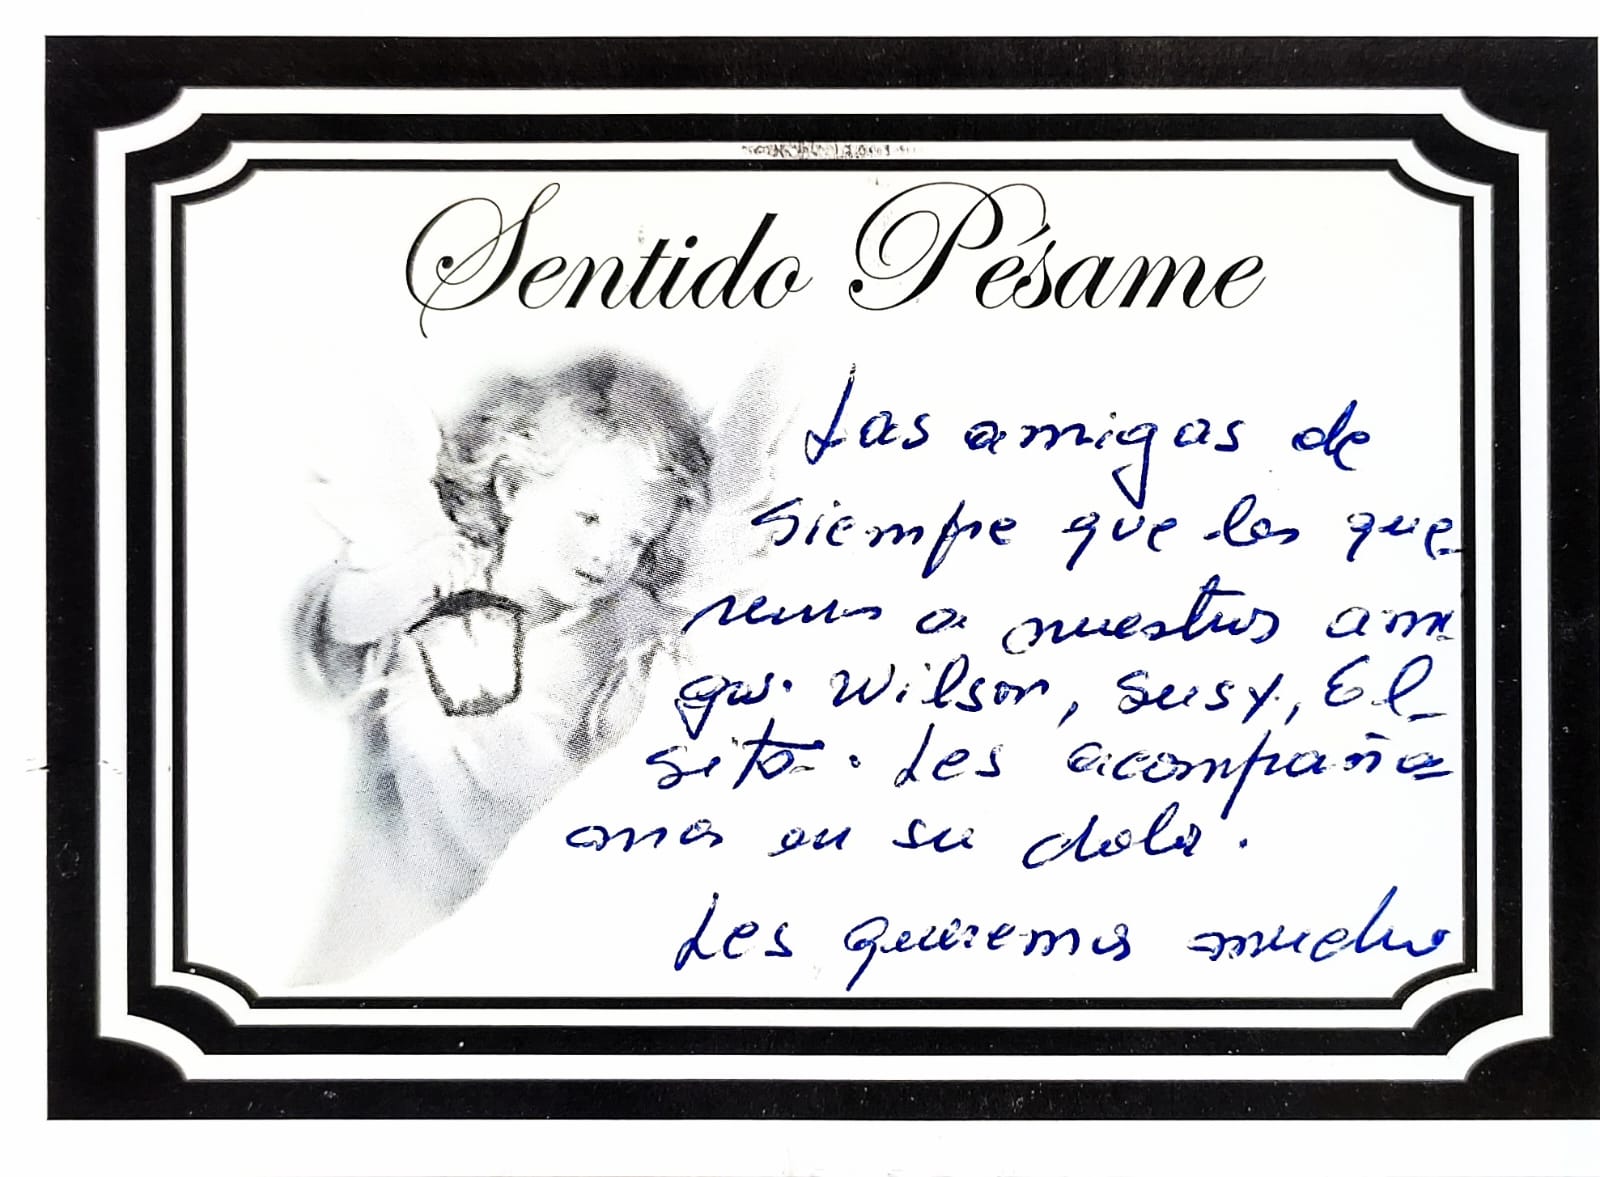 Sentido Pésame
Las amigas de
siempre que los que
remos a nuestros ami
gos. Wilson, Susy, El
sito. Les acompaña
mos en su dolor.
Les queremos mucho